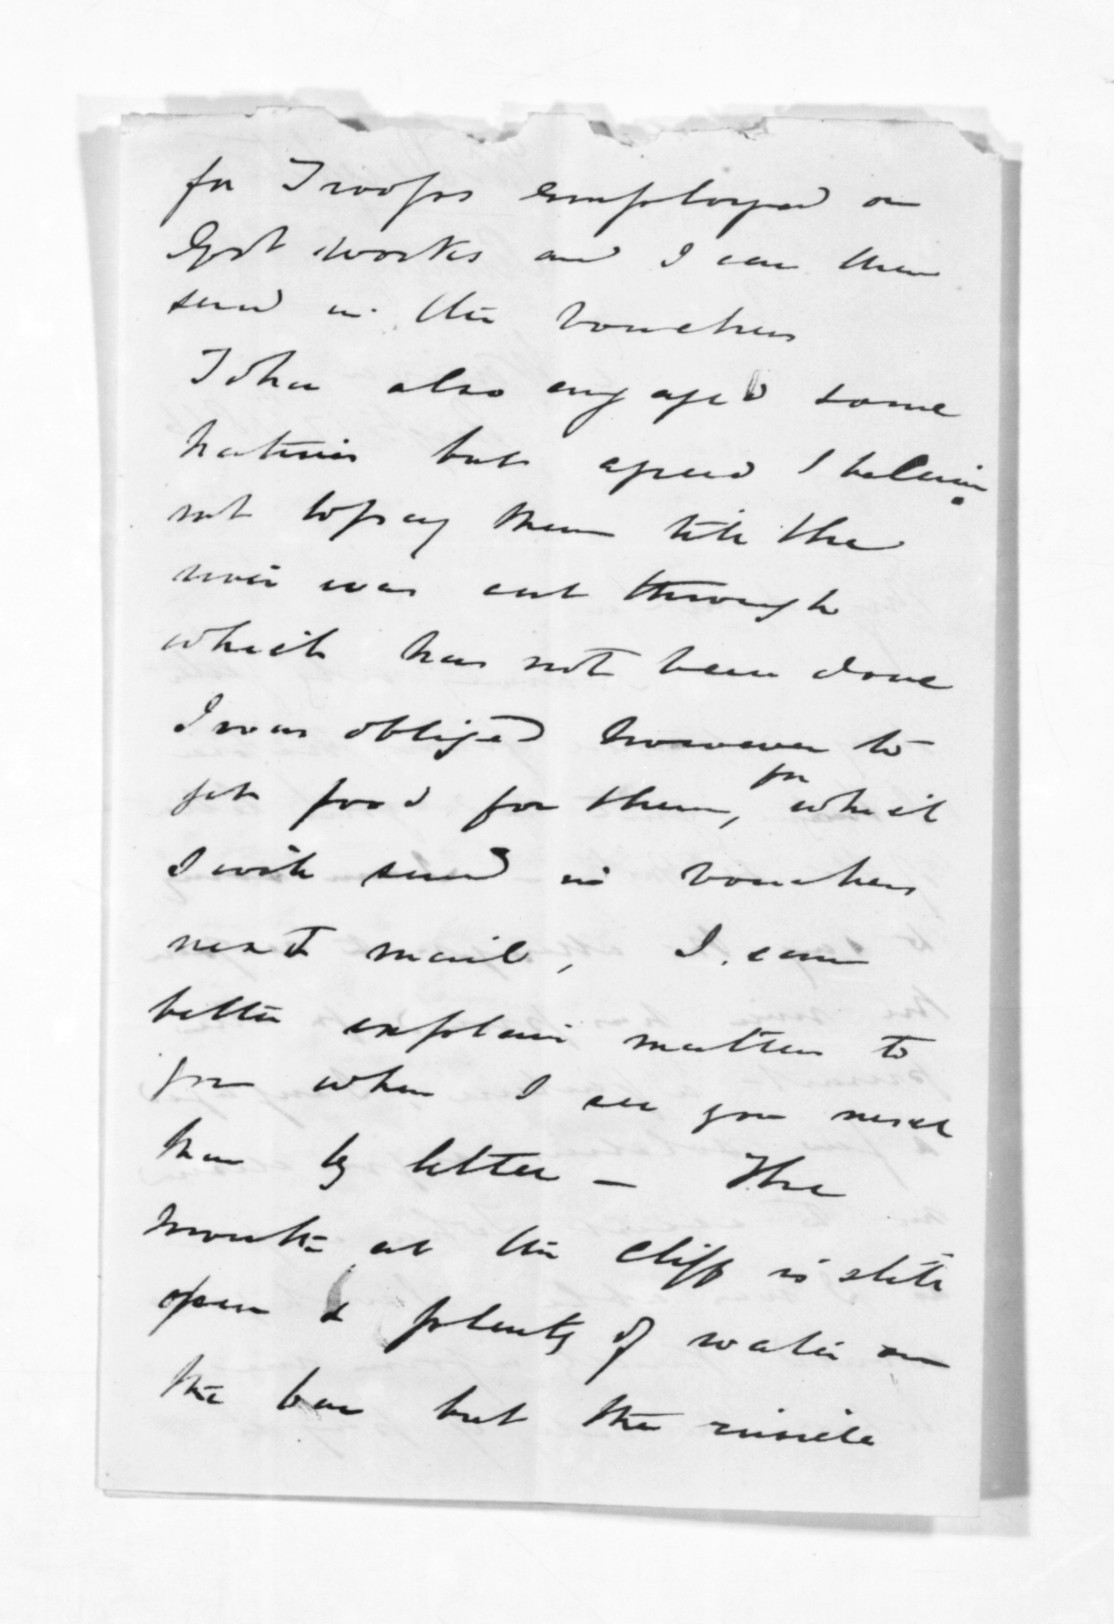 for Troops employed on
Govt works and I can then
send in the vouchers
Tohu also engaged some
natives but agreed I believe
not to pay them till the
river was cut through
which has not been done
I was obliged however to
get food for them, for which
I will send in vouchers
next mail, I can
better explain matters to
you when I see you next
than by letter — The
mouth at the cliff is still
open & plenty of water on
the bar but the inside